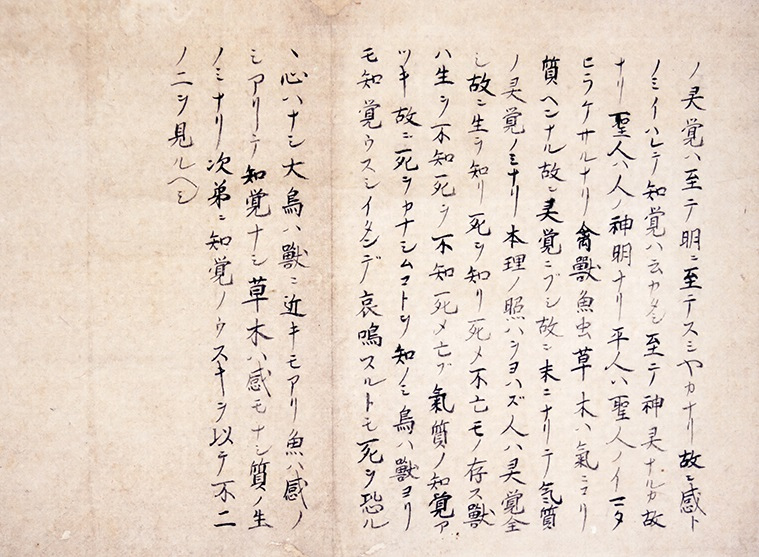 ノ灵覚ハ至テ明ニ至テスミヤカナリ故ニ感ト
ノミイハレテ知覚ハ云カタシ至テ神灵ナルカ故
ナリ聖人ハ人ノ神明ナリ平人ハ聖人ノイマタ
ヒラケサルナリ禽獸魚虫草木ハ氣ニコリ
質ヘンナル故ニ灵覚ニブシ故ニ末ニナリテ気質
ノ灵覚ノミナリ本理ノ照ハヲヨハズ人ハ灵覚全
シ故ニ生ヲ知リ死ヲ知リ死メ不亡モノ存ス獸
ハ生ヲ不知死ヲ不知死メ亡ブ氣質ノ知覚ア
ツキ故ニ死ヲカナシムコトヲ知ノミ鳥ハ獸ヨリ
モ知覚ウスシイタンデ哀鳴スルトモ死ヲ恐ル
ヽ心ハナシ大鳥ハ獸ニ近キモアリ魚ハ感ノ
ミアリテ知覚ナシ草木ハ感モナシ質ノ生
ノミナリ次弟ニ知覚ノウスキヲ以テ不二
ノ二ヲ見ルヘシ